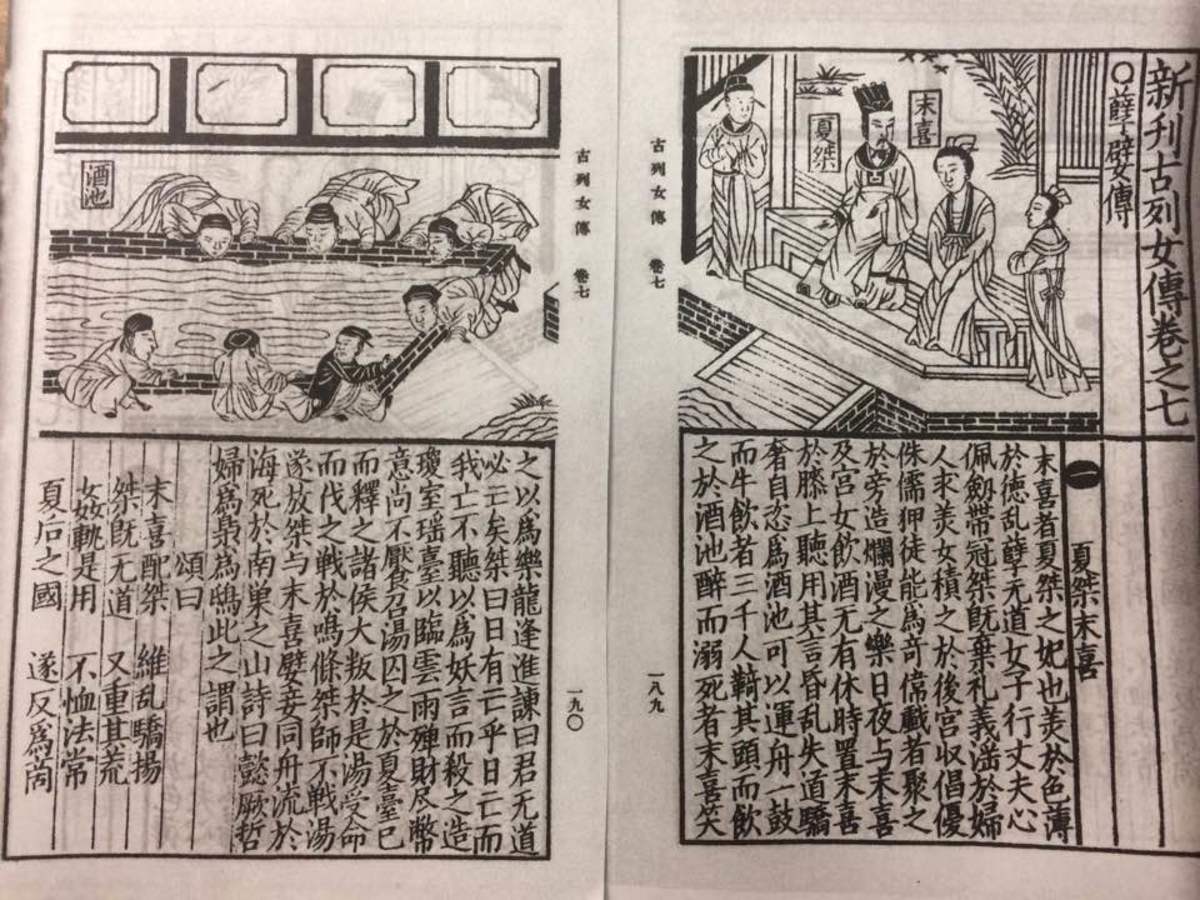 新刋古列女傳卷之七
○孽嬖傳
末喜
夏桀
一 夏桀末喜
末喜者夏桀之妃也美於色薄
於徳乱孽无道女子行丈夫心
佩劔帶冠桀旣棄礼義滛於婦
人求美女積之於後宮収倡優
侏儒狎徒能爲竒偉戱者聚之
於旁造爛漫之樂日夜与末喜
及宮女飮酒无有休時置末喜
於膝上聽用其言昏乱失道驕
奢自恣爲酒池可以運舟一鼓
而牛飮者三千人䩭其頭而飮
之於酒池醉而溺死者末喜笑
古列女傳 卷七
一八九
古列女傳 卷七
一九〇
酒池
之以爲樂龍逢進諫曰君无道
必亡矣桀曰日有亡乎日亡而
我亡不聽以爲妖言而殺之造
瓊室瑶臺以臨雲雨殫財尽幣
意尚不厭召湯囚之於夏臺已
而釋之諸侯大叛於是湯受命
而伐之戰於鳴條桀師不戰湯
遂放桀与末喜嬖妾同舟流於
海死於南巣之山詩曰懿厥哲
婦爲梟爲鴟此之謂也
頌曰
末喜配桀 維乱驕揚
桀旣无道 又重其荒
姦軌是用 不恤法常
夏后之國 遂反爲啇